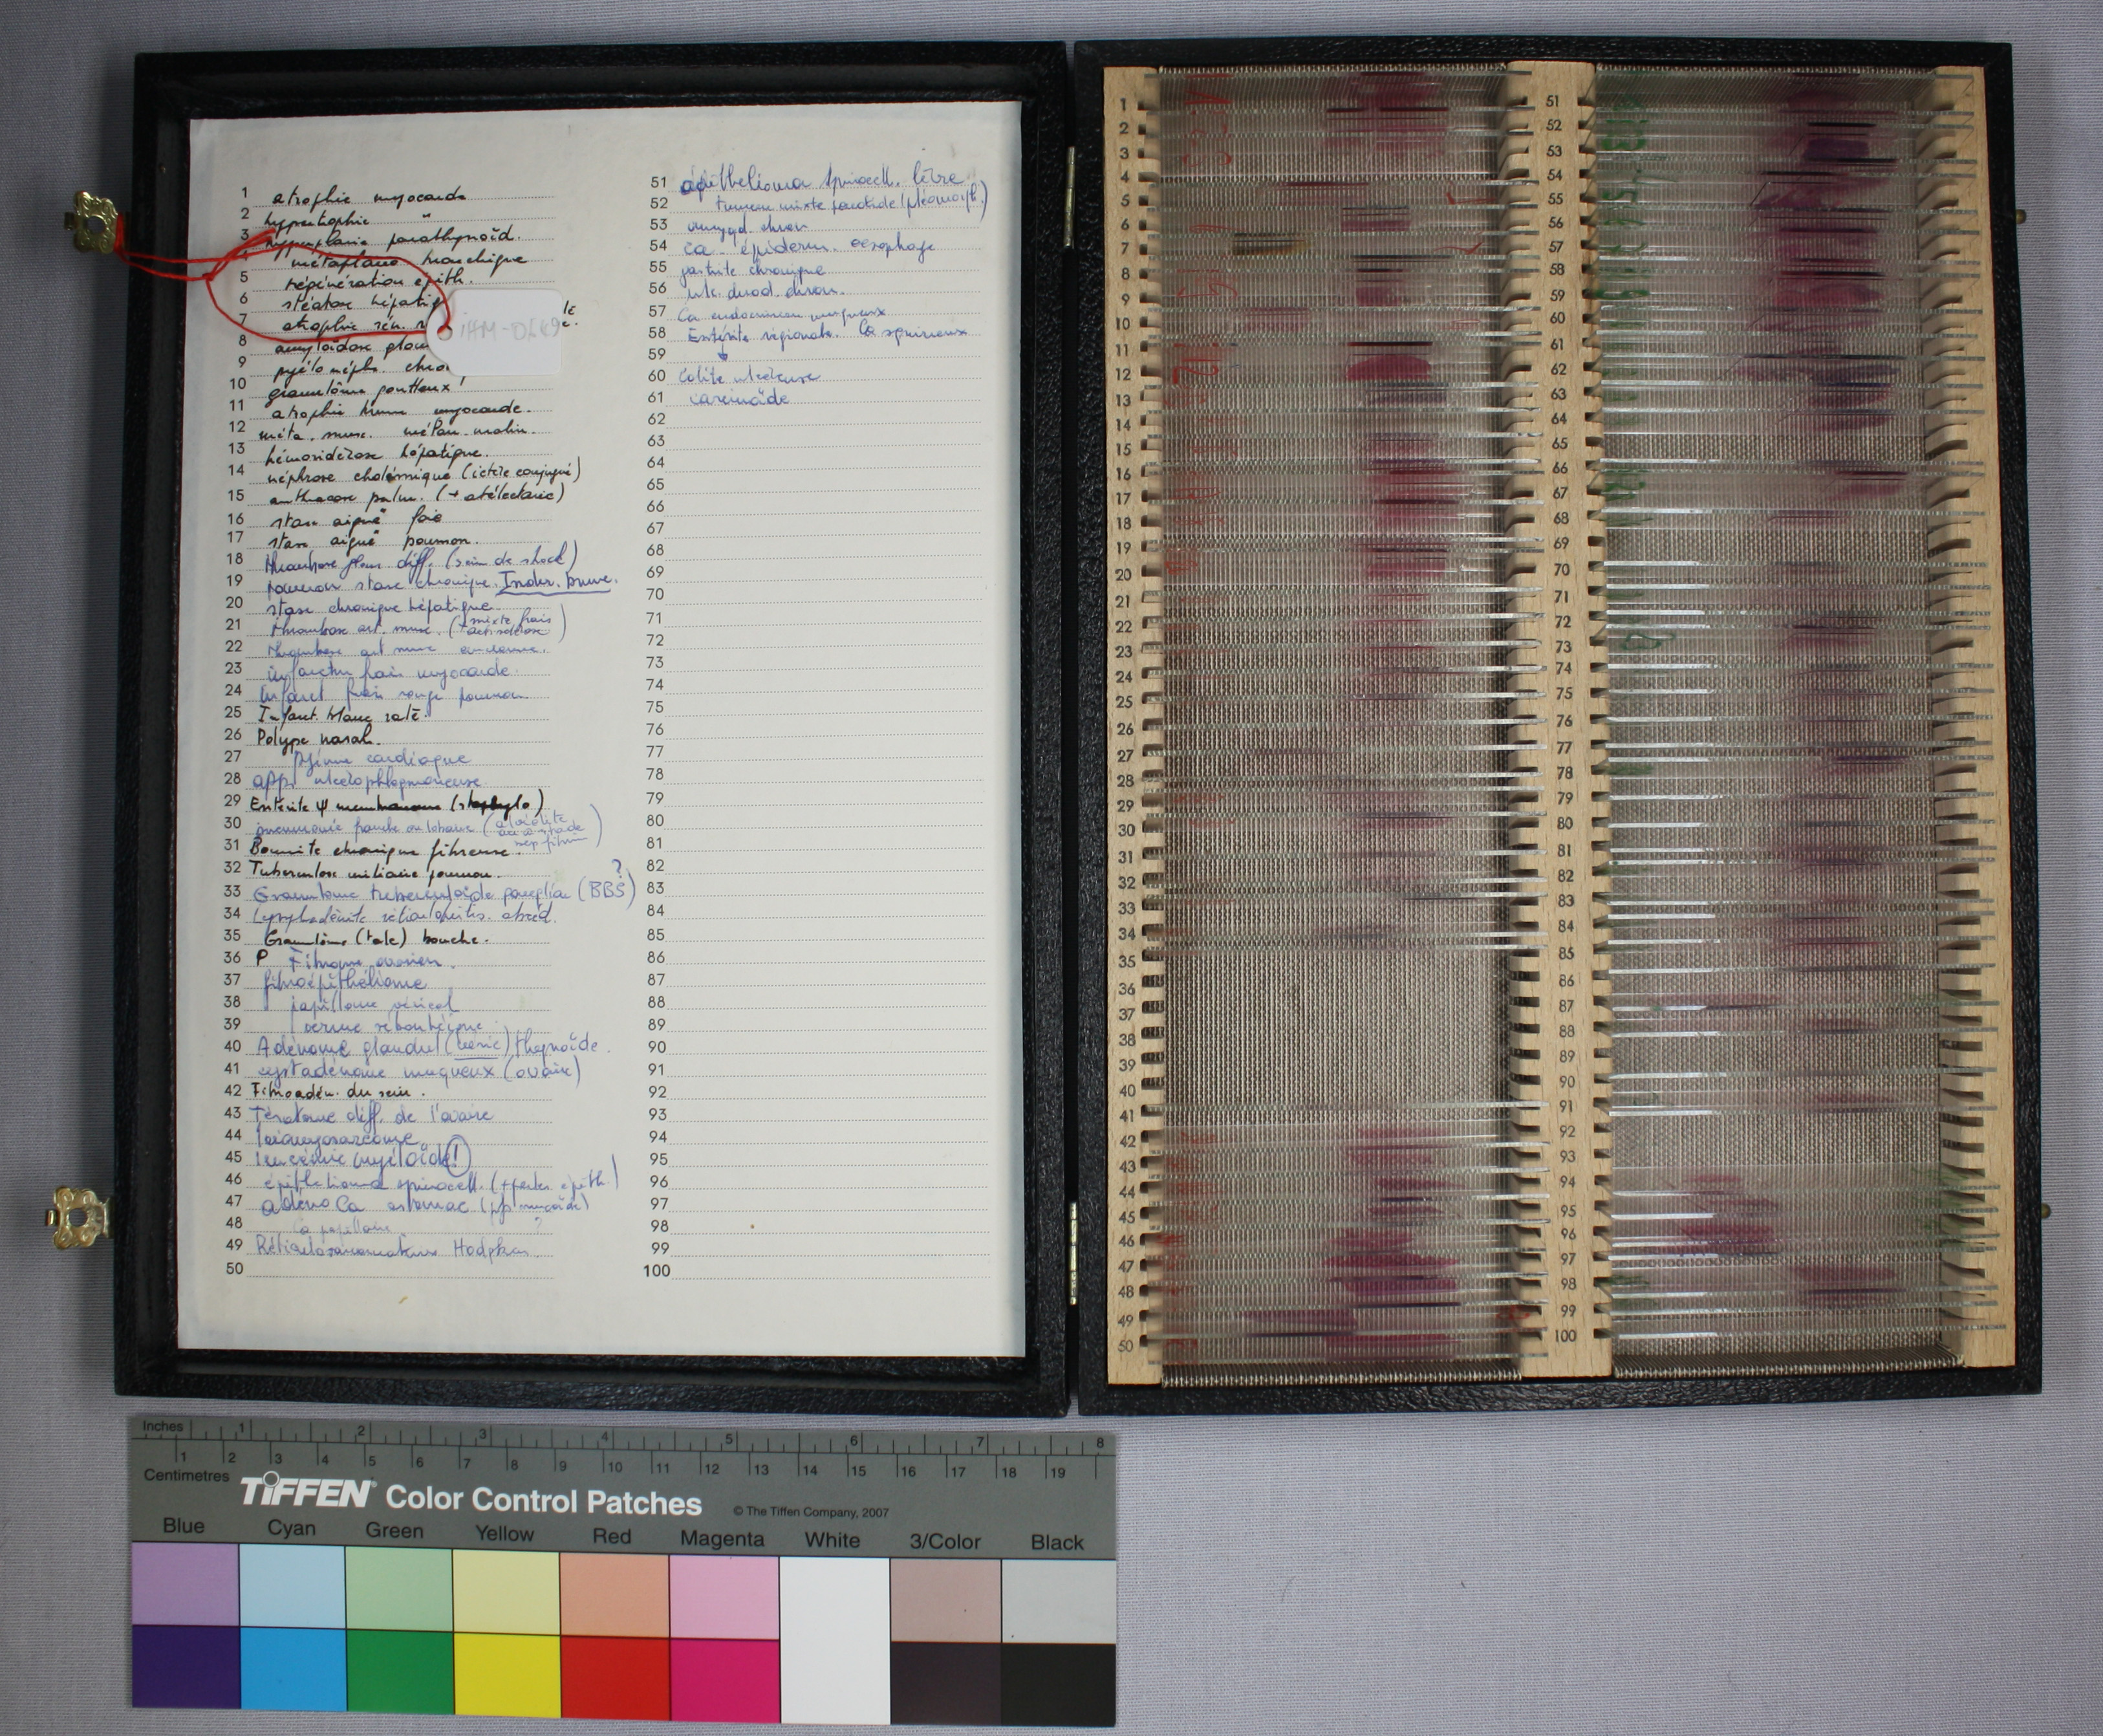 1 atrophie myocarde
2 hypertrophie "
3 hyperplasie parathyroïd.
métaplasie bronchique
5 régénération épith.
6 stéatose hépatiq
7 atrophie rén.
8 amyloïdose glom
9 pyélonéph. chro
10 granulôme goutteux !
11 atrophie brune myocarde.
12 méta. musc. mélan. malin.
13 hémosidérose hépatique.
14 néphrose cholémique (ictère conjugué)
15 anthracose pulm. (+ atélectasie)
16 stase aiguë foie
17 stase aiguë poumon.
18 thrombose glom diff. (de shock)
19 poumon stase chronique. Indur. brune.
20 stase chronique hépatique
21 thrombose art. musc. (+ mixte frais
22 thrombose art musc
23 infarctus frais myocarde.
24 Infarct frais rouge poumon
25 Infarct. blanc rate.
26 Polype nasal.
27 cardiaque
28 app. ulcérophlegmoneuse
29 Entérite ψ membraneuse (staphylo)
30 pneumonie franche ou lobaire (alvéolite
31 Boursite chronique fibreuse.
32 Tuberculose miliaire poumon.
33 Granulome tuberculoïde ganglion (BBS) ?
34 Lymphadénite abcéd.
35 Granulôme (talc) bouche.
36 P Fibrome ovarien.
37 fibroépithéliome
38 papillome vésical
39 verrue séborrhéique
40 Adénome glandul. thyroïde.
41 cystadénome muqueux (ovaire)
42 Fibroadén. du sein.
43 Tératome diff. de l'ovaire
44 leiomyosarcome
45 leucémie myéloïde !
46 épithélioma spinocell. (+ épith.)
47 adéno Ca estomac (mucoïde)
48 Ca papillaire ?
49 Hodgkin.
50
51 épithélioma spinocell. lèvre
52 tumeur mixte parotide (pléomorph.)
53 amygd. chron
54 Ca. épiderm. oesophage
55 gastrite chronique
56 ulc. duod. chron.
57 Ca
58 Entérite régionale.
59
60 Colite ulcéreuse
61 carcinoïde
62
63
64
65
66
67
68
69
70
71
72
73
74
75
76
77
78
79
80
81
82
83
84
85
86
87
88
89
90
91
92
93
94
95
96
97
98
99
100
1
2
3
4
5
6
7
8
9
10
11
12
13
14
15
16
17
18
19
20
21
22
23
24
25
26
27
28
29
30
31
32
33
34
35
36
37
38
39
40
41
42
43
44
45
46
47
48
49
50
51
52
53
54
55
56
57
58
59
60
61
62
63
64
65
66
67
68
69
70
71
72
73
74
75
76
77
78
79
80
81
82
83
84
85
86
87
88
89
90
91
92
93
94
95
96
97
98
99
100
Inches 1 2 3 4 5 6 7 8
1 2 3 4 5 6 7 8 9 10 11 12 13 14 15 16 17 18 19
Centimetres
TIFFEN Color Control Patches © The Tiffen Company, 2007
Blue Cyan Green Yellow Red Magenta White 3/Color Black